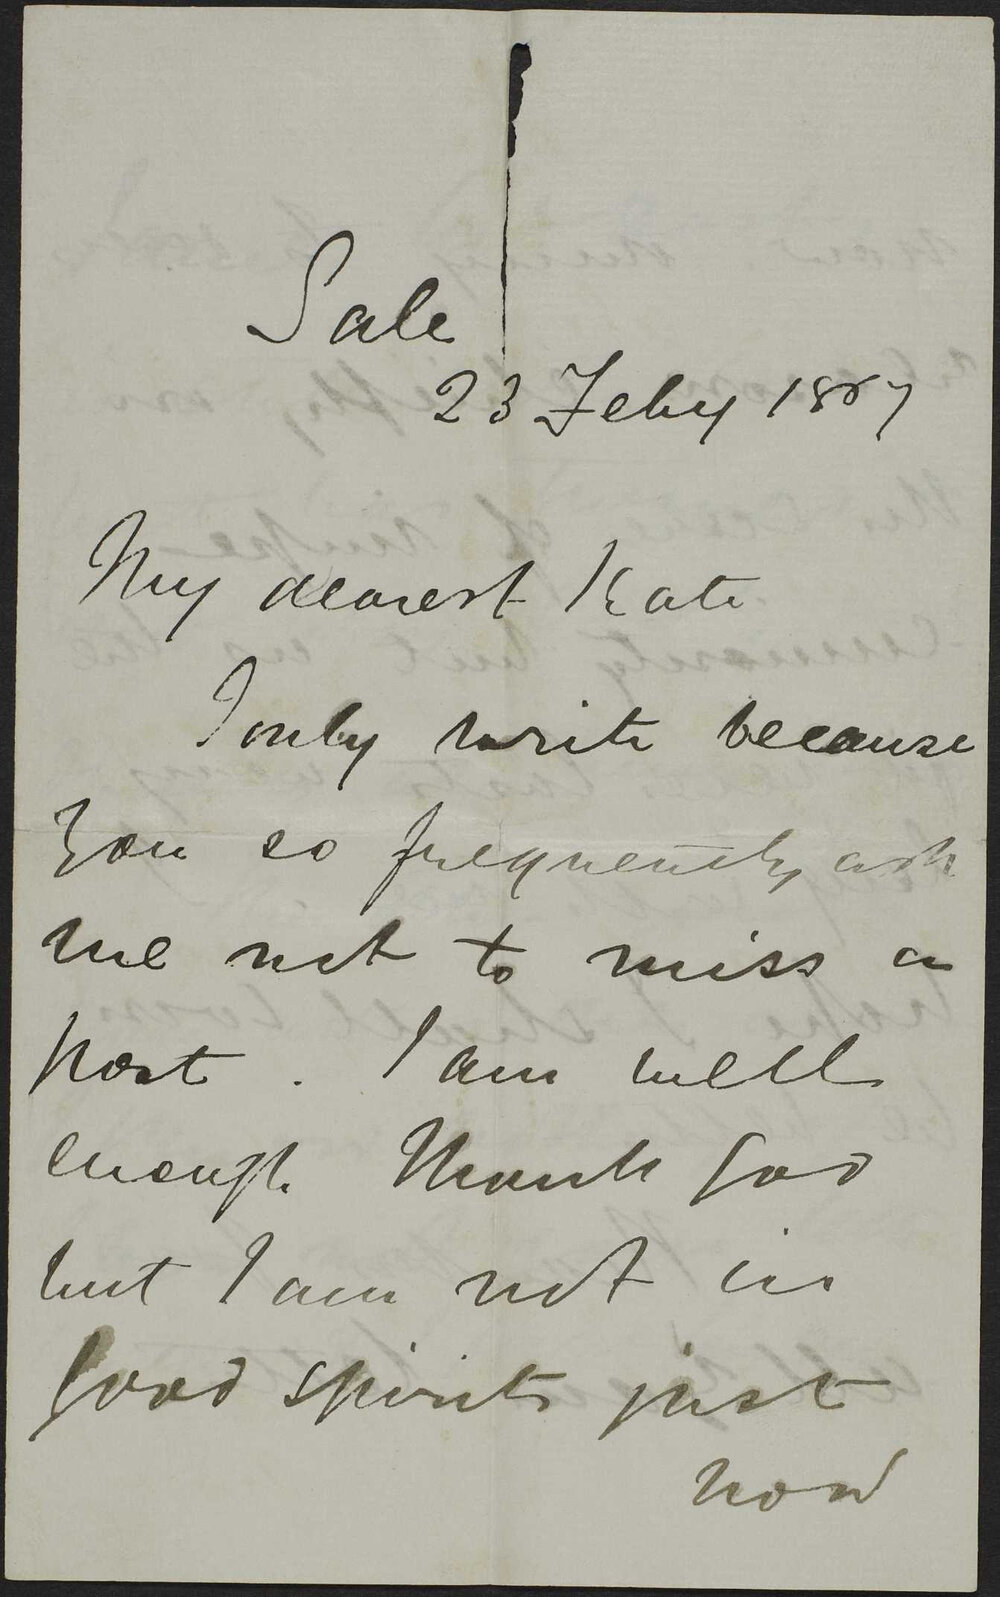 Sale
23 Feby 1867
My dearest Kate
I only write because
you so frequently ask
me not to miss a
post. I am well
enough Thank God
but I am not in
good spirits just
now